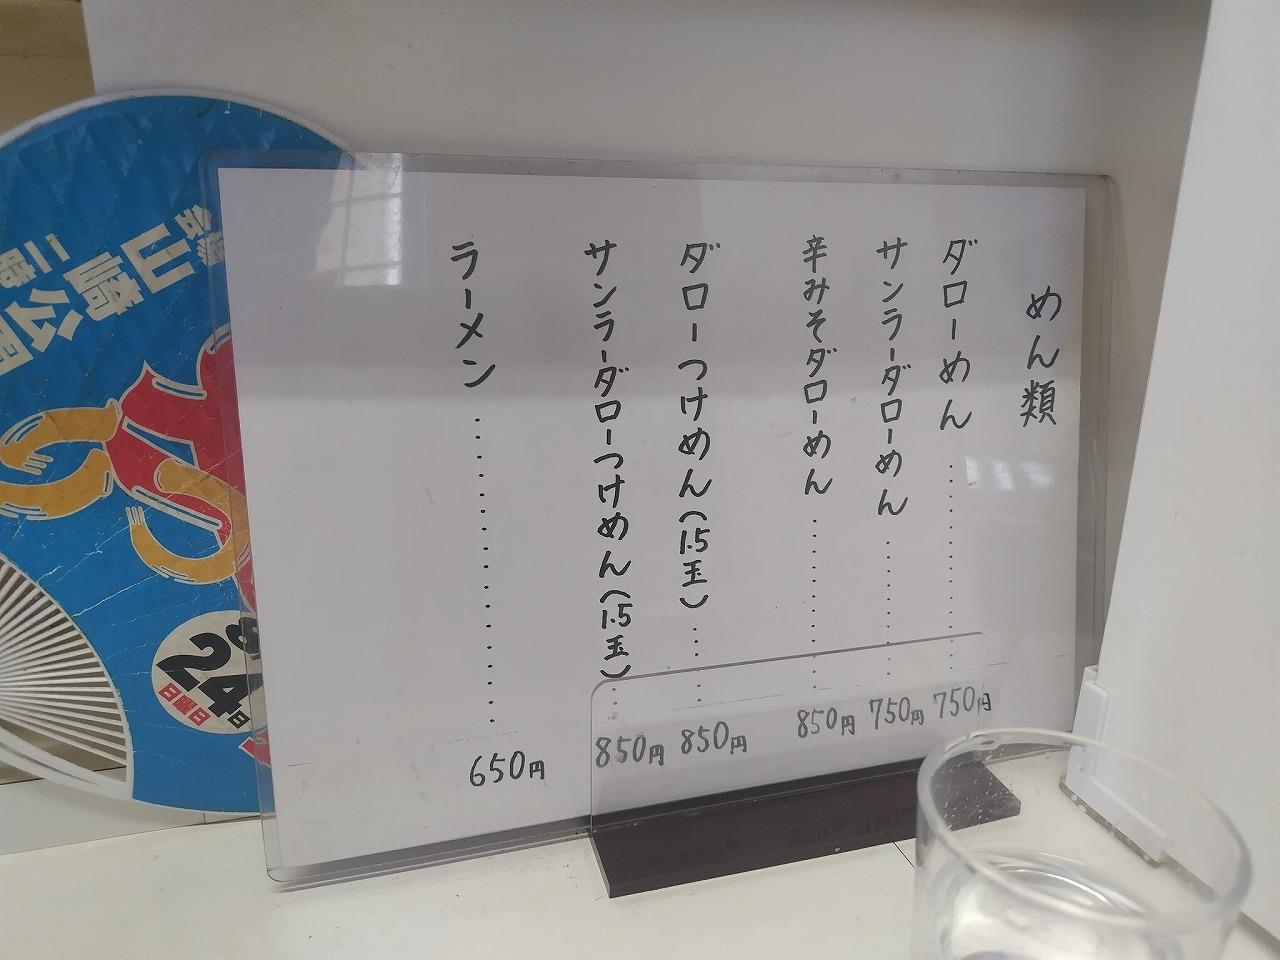 めん類
ダローめん ………… 750円
サンラーダローめん ……… 750円
辛みそダローめん ……… 850円
ダローつけめん(1.5玉) …… 850円
サンラーダローつけめん(1.5玉) … 850円
ラーメン ………………… 650円
会場
山崎公園
24日
日曜日